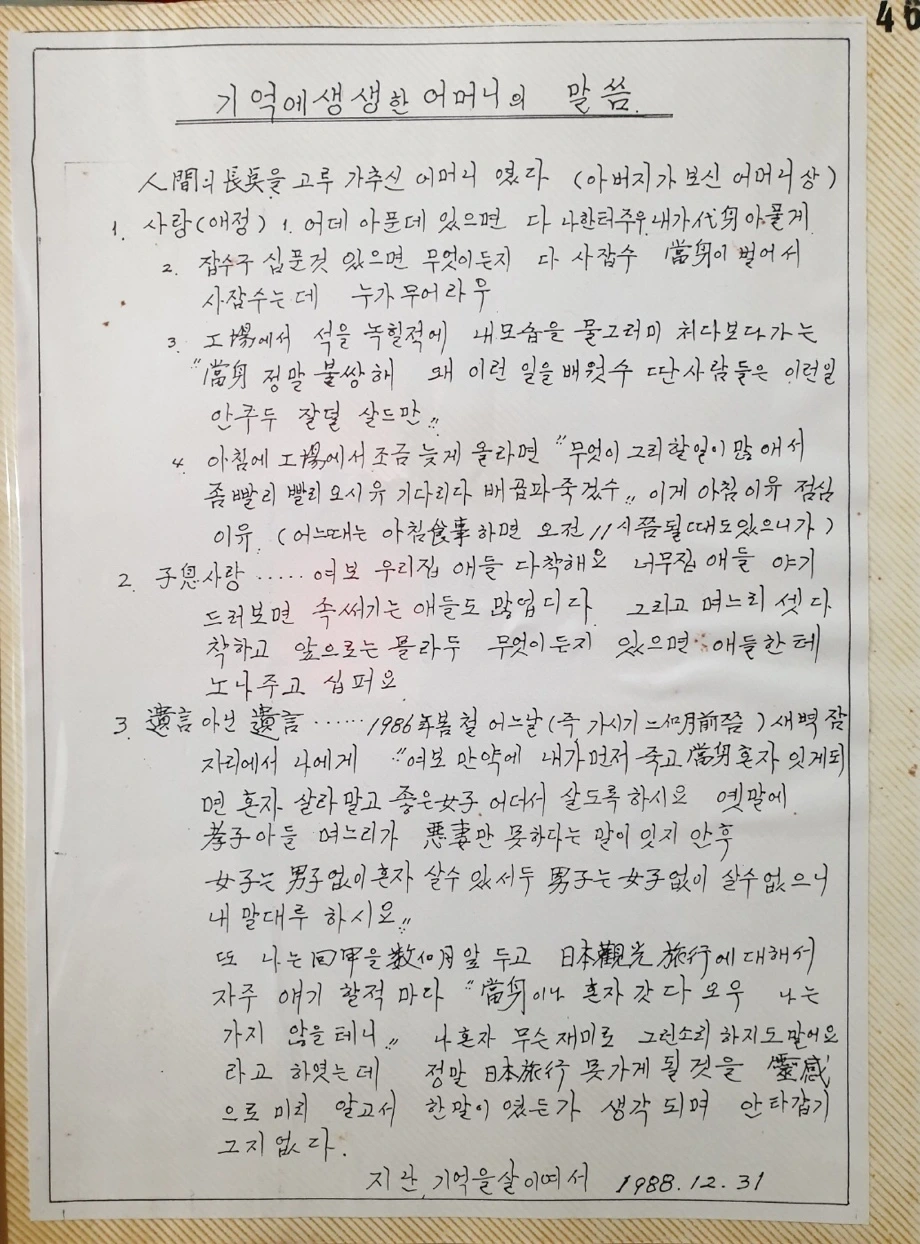 46
기억에 생생한 어머니의 말씀.
人間의 長兵을 고루 가추신 어머니 였다 (아버지가 보신 어머니상)
1. 사랑(애정) 1. 어데 아푼데 있으면 다 나한터주우 내가 代身 아풀게
2. 잡수구 십푼것 있으면 무엇이든지 다 사잡수 當身이 벌어서
사잡수는데 누가 무어라우
3. 工場에서 석을 녹힐적에 내모습을 물그러미 처다보다가는
"當身 정말 불쌍해 왜 이런 일을 배웟수 딴사람들은 이런일
안쿠두 잘덜 살드만"
4. 아침에 工場에서 조금 늦게 올라면 "무엇이 그리 할일이 많애서
좀 빨리 빨리 오시유 기다리다 배곱파 죽겄수" 이게 아침이유 점심
이유. (어느때는 아침食事하면 오전 11시쯤 될때도 있으니가)
2. 子息사랑 ...... 여보 우리집 애들 다착해요 너무집 애들 야기
드러보면 속써기는 애들도 많업디다 그리고 며느리 셋 다
착하고 앞으로는 몰라두 무엇이든지 있으면 애들한테
노나주고 십퍼요
3. 遺言 아닌 遺言 ...... 1986年 봄철 어느날 (주 가시기 三個月前쯤) 새벽 잠
자리에서 나에게 "여보 만약에 내가 먼저 죽고 當身 혼자 잇게되
면 혼자 살라 말고 좋은 女子 어더서 살도록 하시요 옛말에
孝子아들 며느리가 惡妻만 못하다는 말이 잇지 안후
女子는 男子 없이 혼자 살수 있서두 男子는 女子없이 살수 없으니
내 말대루 하시요"
또 나는 回甲을 数個月 앞 두고 日本觀光 旅行에 대해서
자주 얘기 할적 마다 "當身이나 혼자 갓 다 오우 나는
가지 않을 테니" 나혼자 무슨 재미로 그런소리 하지도 말어요
라고 하엿는데 정말 日本旅行 못가게 될 것을 靈感
으로 미리 알고서 한말이 였든가 생각 되며 안타갑기
그지 없다.
지난 기억을 살이여서 1988. 12. 31